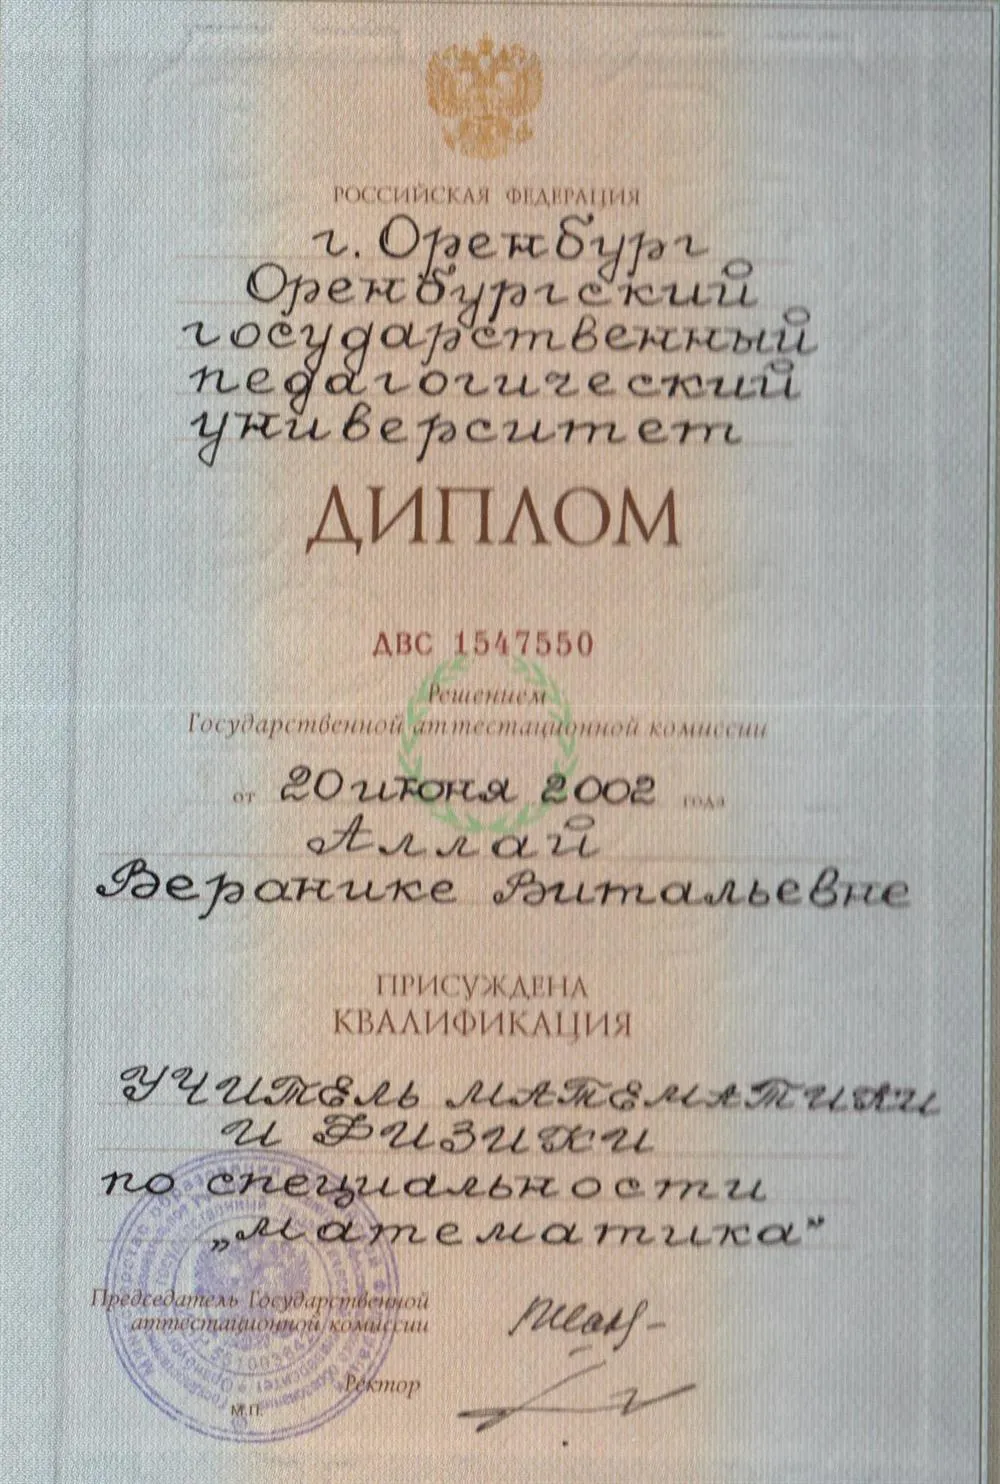 РОССИЙСКАЯ ФЕДЕРАЦИЯ
г. Оренбург
Оренбургский
государственный
педагогический
университет
ДИПЛОМ
ДВС 1547550
Решением
Государственной аттестационной комиссии
от 20 июня 2002 года
Аллай
Веранике Витальевне
ПРИСУЖДЕНА
КВАЛИФИКАЦИЯ
УЧИТЕЛЬ МАТЕМАТИКИ
И ФИЗИКИ
по специальности
„Математика“
Председатель Государственной
аттестационной комиссии
Ректор
М.П.